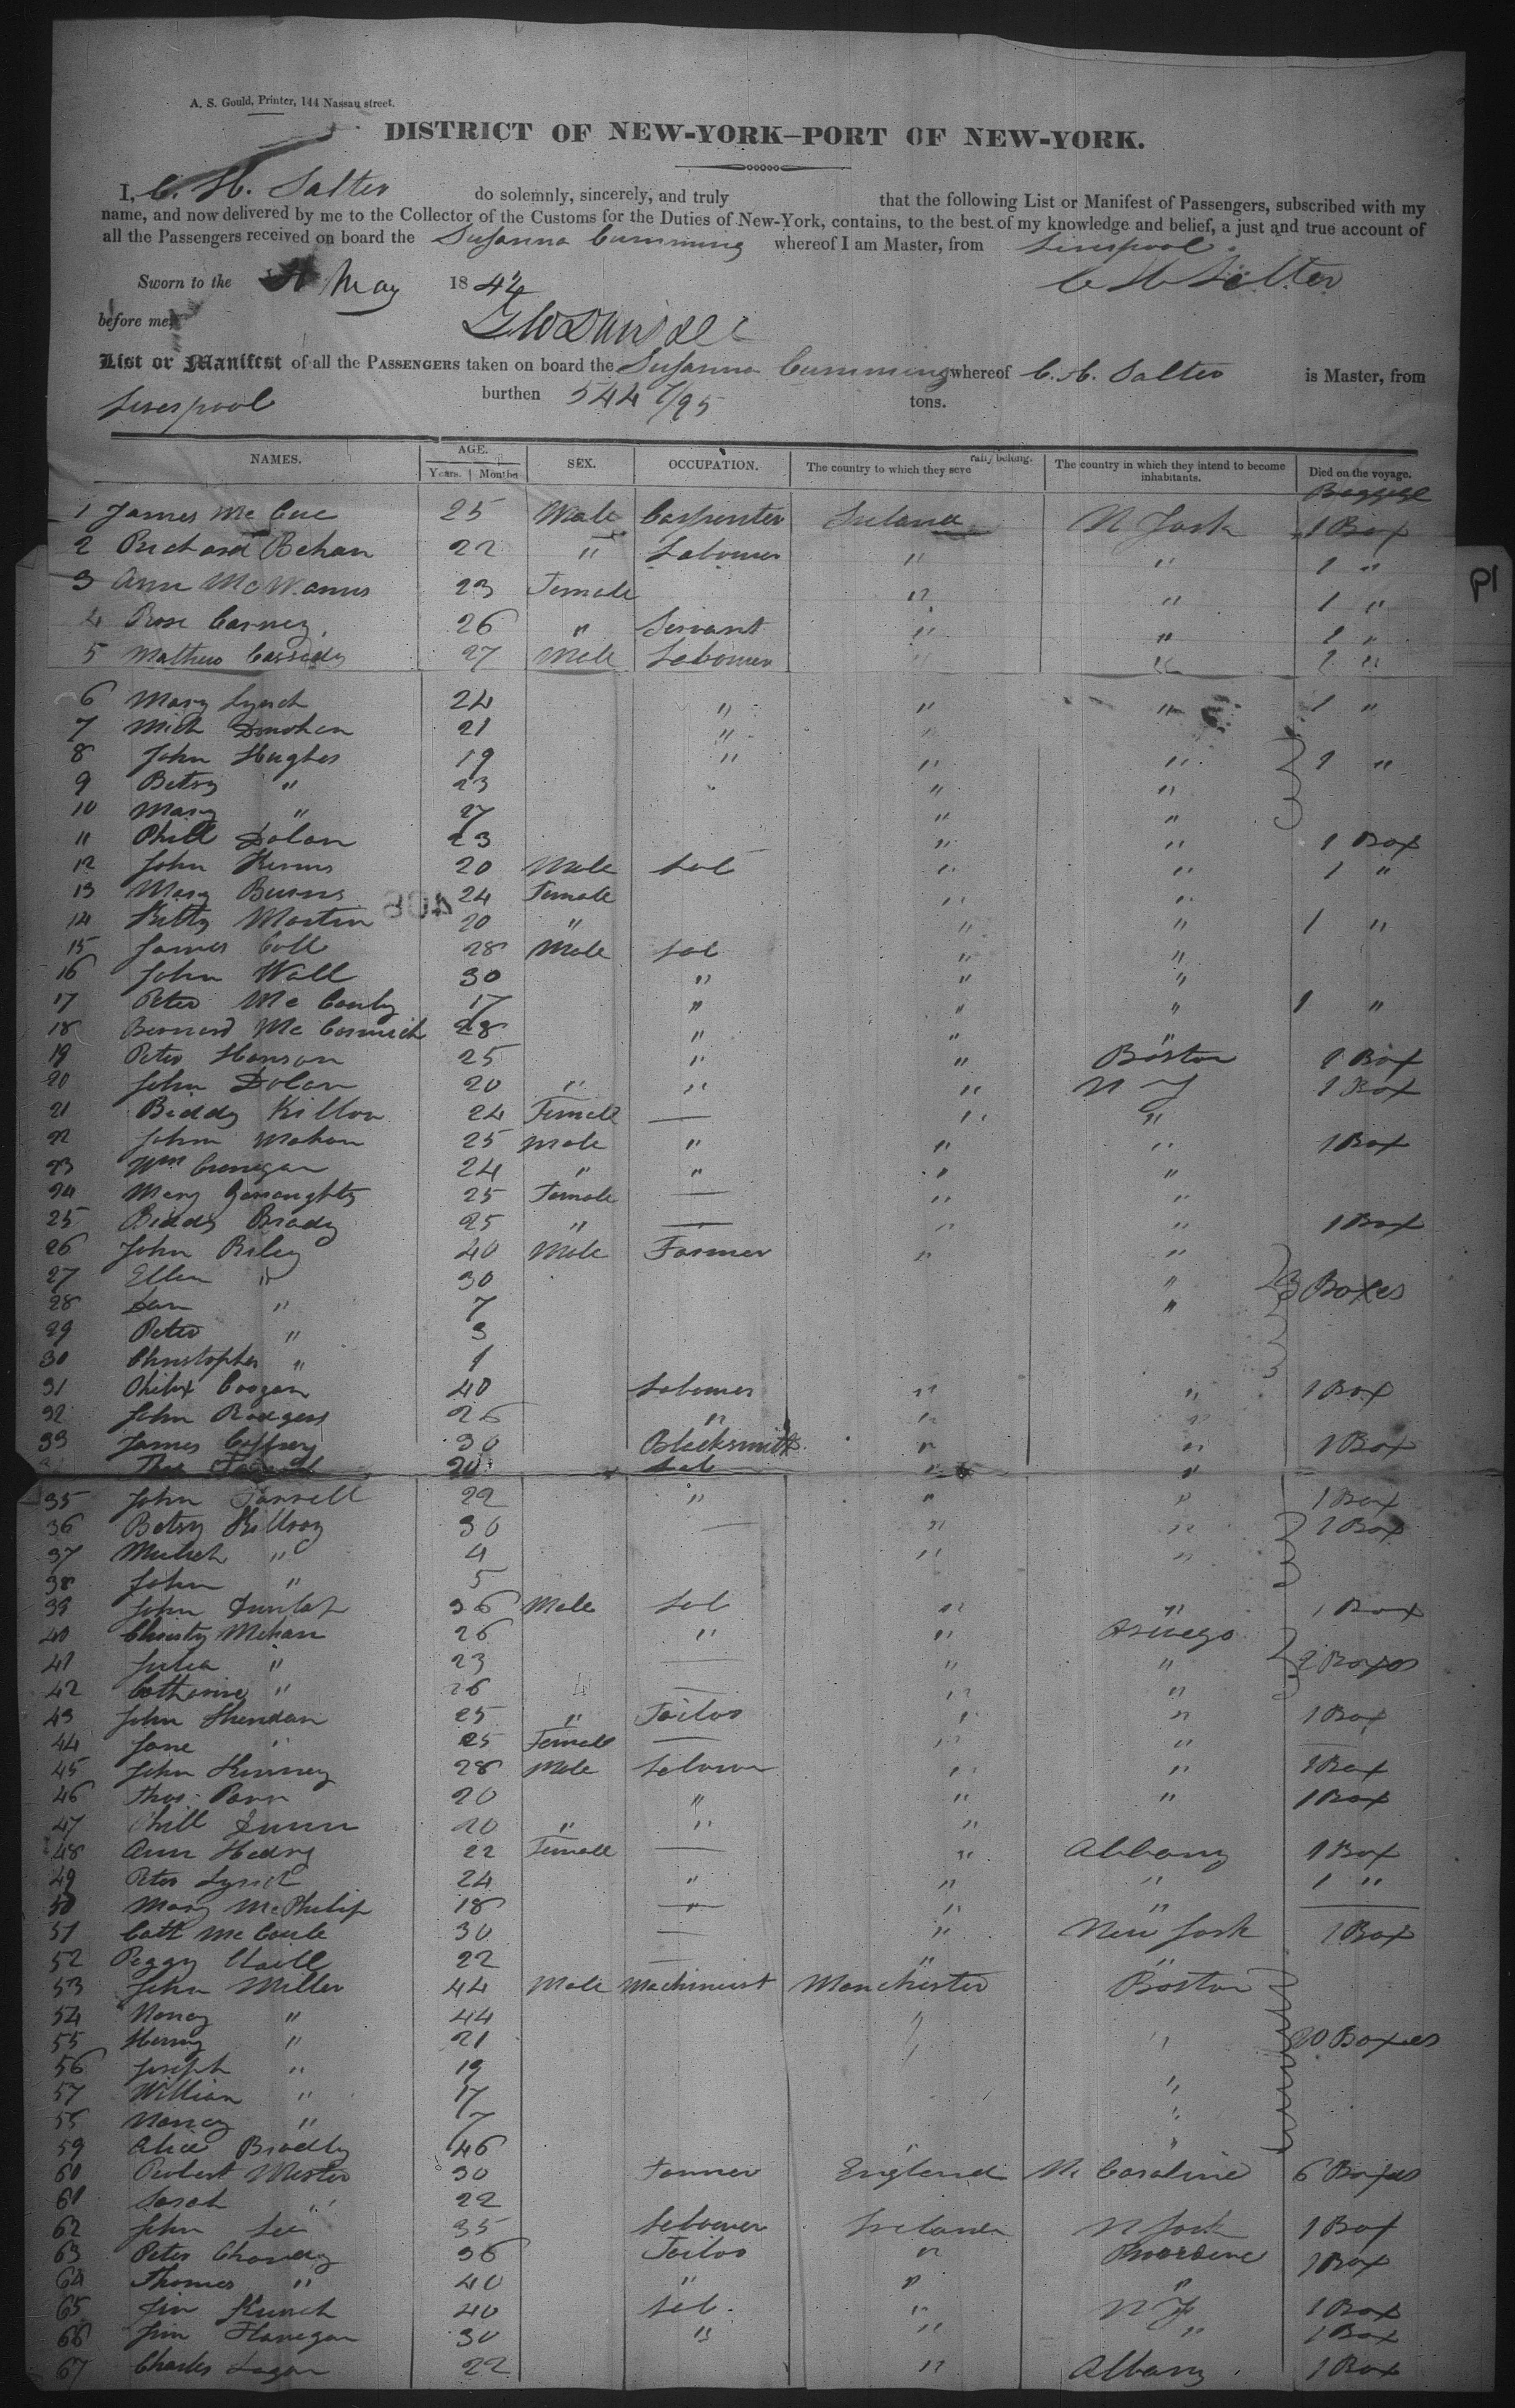 A. S. Gould, Printer, 144 Nassau street.
DISTRICT OF NEW-YORK–PORT OF NEW-YORK.
I, C. H. Salter do solemnly, sincerely, and truly that the following List or Manifest of Passengers, subscribed with my
name, and now delivered by me to the Collector of the Customs for the Duties of New-York, contains, to the best of my knowledge and belief, a just and true account of
all the Passengers received on board the Susanna Cumming whereof I am Master, from Liverpool
Sworn to the May 1842 C H Salter
before me,
List or Manifest of all the PASSENGERS taken on board the Susanna Cumming whereof C. H. Salter is Master, from
Liverpool burthen 544 7/95 tons.
NAMES. AGE. SEX. OCCUPATION. The country to which they severally belong. The country in which they intend to become inhabitants. Died on the voyage.
Years. Months Baggage
1 James Mc Cue 25 Male Carpenter Ireland N York 1 Box
2 Richard Behan 22 " Labourer " " 1 "
3 Ann McManus 23 Female " " 1 "
4 Rose Carney 26 " Servant " " 1 "
5 Mathew Cassedy 27 Male Labourer " " 1 "
6 Mary Lynch 24 " " " 1 "
7 Mich Donohen 21 " "
8 John Hughes 19 " " " 1 "
9 Betsy " 23 " "
10 Mary " 27 " "
11 Phill Dolan 23 " " 1 Box
12 John Kerns 20 Male Lab " " 1 "
13 Mary Burns 24 Female " "
14 Kitty Martin 20 " " " 1 "
15 James Coll 28 Male Lab " "
16 John Wall 30 " " "
17 Peter Mc Cauly 17 " " " 1 "
18 Bernard Mc Cormick 28 " " "
19 Peter Hanson 25 " " Boston 1 Box
20 John Dolan 20 " " " N Y 1 Box
21 Biddy Killon 24 Female — " "
22 John Mahon 25 Male " " " 1 Box
23 Wm Cunegan 24 " " " "
24 Mary 25 Female — " "
25 Biddy Brady 25 " — " " 1 Box
26 John Riley 40 Male Farmer " "
27 Ellen " 30 " 3 Boxes
28 Dan " 7 "
29 Peter " 3
30 Christopher " 1
31 Coogan 40 Labourer " " 1 Box
32 John Rodgers 26 " " "
33 James Caffrey 30 Blacksmith " " 1 Box
Thos 20 Lab " "
35 John Farrell 22 " " " 1 Box
36 Betsy Killroy 30 — " " 1 Box
37 " 4 " "
38 John " 5
39 John Dunlap 36 Male Lab " " 1 Box
40 Christy Mehan 26 " " Oswego
41 Julia " 23 — " " 2 Boxes
42 Catharine " 26 — " "
43 John Sheridan 25 " Tailor " " 1 Box
44 Jane " 25 Female — " "
45 John Kinney 28 Male Labourer " " 1 Box
46 Thos. 20 " " " 1 Box
47 Phill Dunn 20 " " "
48 Ann 22 Female — " Albany 1 Box
49 Peter Lynch 24 " " " 1 "
50 Mary McPhilip 18 — " "
51 Cath Mc Caule 30 — " New York 1 Box
52 Peggy 22 — " "
53 John Miller 44 Male Machinist Manchester Boston
54 Nancy " 44 "
55 Henry " 21 " " 20 Boxes
56 Joseph " 19
57 William " 17 "
58 Nancy " 7 "
59 Alice Bradly 46 "
60 Robert Mister 30 Farmer England N. Caroline 6 Boxes
61 Sarah " 22
62 John Lee 35 Labourer Ireland N York 1 Box
63 Peter 36 Tailor " 1 Box
64 Thomas " 40 " " "
65 Jim 40 Lab. " N Y 1 Box
66 Jim Flanegan 30 " " " 1 Box
67 Charles Logan 22 " Albany 1 Box